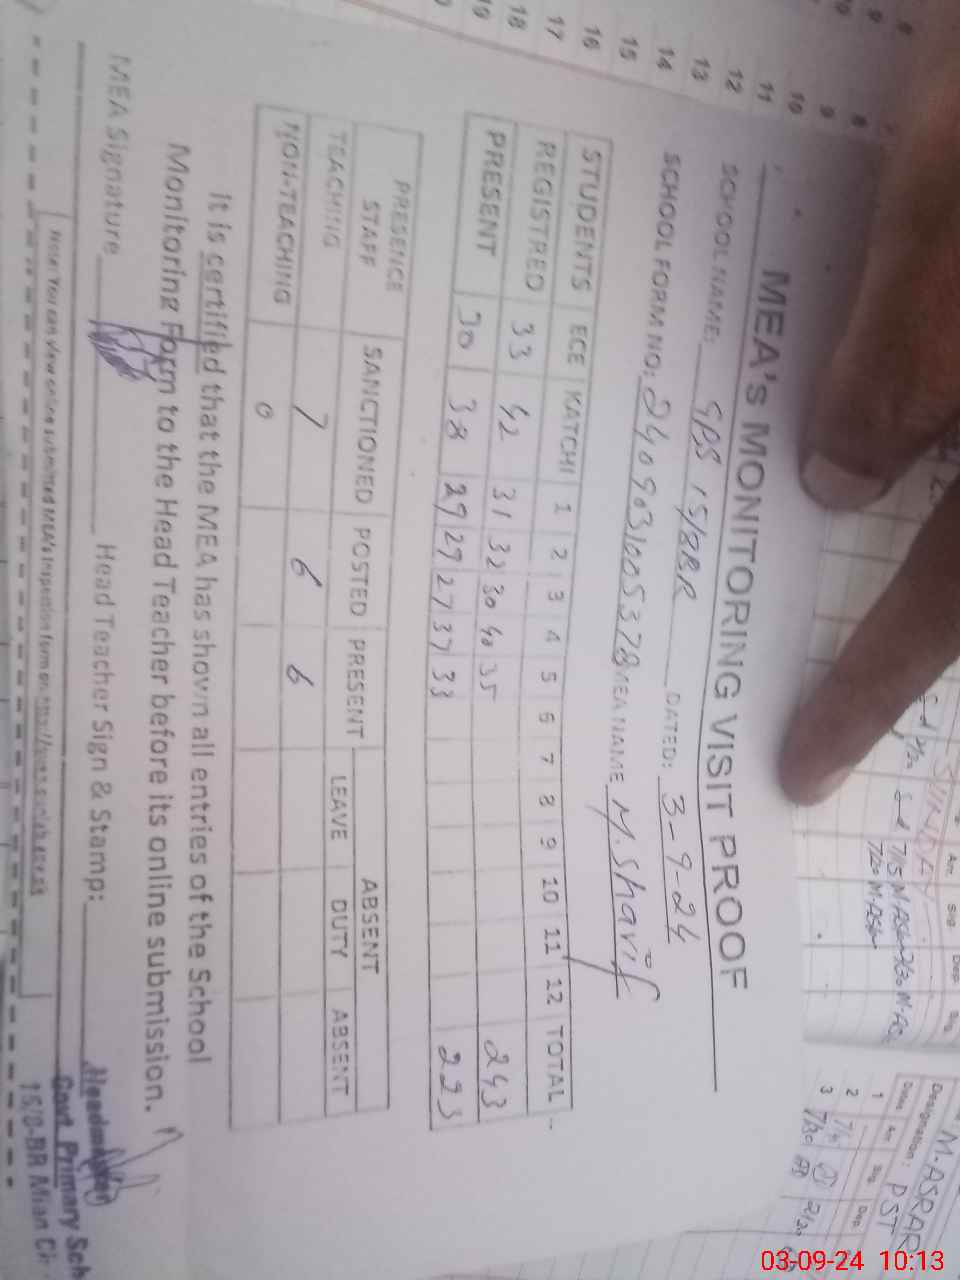 MEA's MONITORING VISIT PROOF
SCHOOL NAME: GPS 15/8BR DATED: 3-9-24
SCHOOL FORM NO: MEA NAME M. Sharif
STUDENTS ECE KATCHI 1 2 3 4 5 6 7 8 9 10 11 12 TOTAL
REGISTRED 33 42 31 32 30 40 35 243
PRESENT 30 38 29 29 27 37 33 223
PRESENCE STAFF SANCTIONED POSTED PRESENT ABSENT
LEAVE DUTY ABSENT
TEACHING 7 6 6
NON-TEACHING 0
It is certified that the MEA has shown all entries of the School
Monitoring Form to the Head Teacher before its online submission.
MEA Signature Head Teacher Sign & Stamp:
Govt. Primary Sch
15/8-BR Mian Ch
Note: You can view online submitted MEA's inspection form on
8
9
10
11
12
13
14
15
16
17
18
19
SUNDAY
M-ASRAR
Designation: PST
Date Arr Sig Dep
1
2
3 7/30
03-09-24 10:13